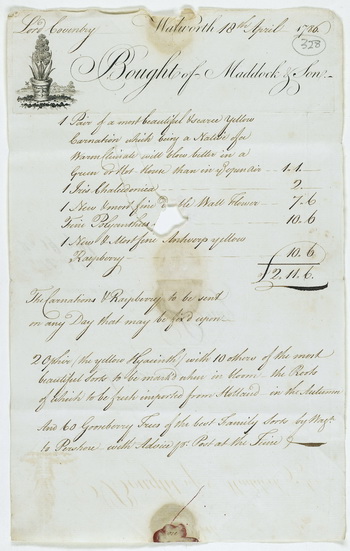 Lord Coventry
Walworth 18th April 1786
328
Bought of Maddock & Son
1 Pair of a most beautiful & scarce yellow
Carnation which being a Native of a
Warm Climate will blow better in a
Green or Hot House than in ye open air 1.1.
1 Iris Chalcedonica 2
1 New & most fine double Wall Flower 7.6
Fine Polyanthus 10.6
1 New & Most fine Antwerp yellow
Raspberry 10.6
£2.11.6.
The Carnations & Raspberry to be sent
on any Day that may be fix'd upon
2 Ophir (the yellow Hyacinth) with 10 others of the most
beautiful Sorts to be mark'd when in bloom the Roots
of which to be fresh imported from Holland in the Autumn
And 60 Gooseberry Trees of the best Family Sorts by Wagn
to Pershore with Advice pr Post at the Time